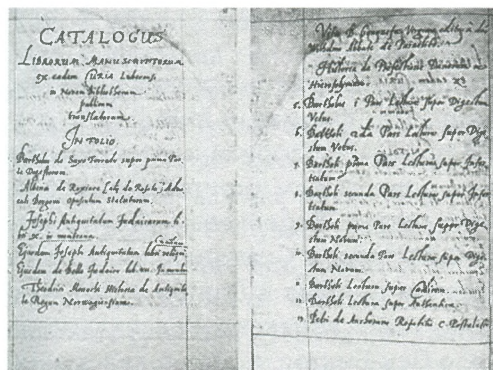 CATALOGUS
LIBRORUM MANUSCRIPTORUM
ex eadem CURIA Lubecensi
in Novam Bibliothecam
publicam
translatorum.
IN FOLIO.
Bartholus de Saxo Ferrato super prima Par-
te Digestorum.
Albertus de
Opusculum Statutorum.
Josephi Antiquitatum Judaicarum li-
bri X. in membrana.
Ejusdem Josephi Antiquitatum libri reliqui
Ejusdem de Bello Judaico lib. VII. In membr.
Theodrici Monachi Historia de Antiquita-
te Regum Norwagiensium.
Vita S. edita à
Wilhelmo Abbate de
Historia de Profectione Danorum in
Hierosolymam.
5. Bartholus i Pars Lectura super Digestum
Vetus.
6. Bartholi 2da Pars Lectura super Dige-
stum Vetus.
7. Bartholi prima Pars Lectura super Infor-
tiatum
8. Bartholi secunda Pars Lectura super Infor-
tiatum
9. Bartholi prima Pars Lectura super Dige-
stum Novum.
10. Bartholi secunda Pars Lectura super Dige-
stum Novum.
11. Bartholi Lectura super Codicem.
12. Bartholi Lectura super Authentica.
13. Petri de Ancharano Repetitio C. Postulasti